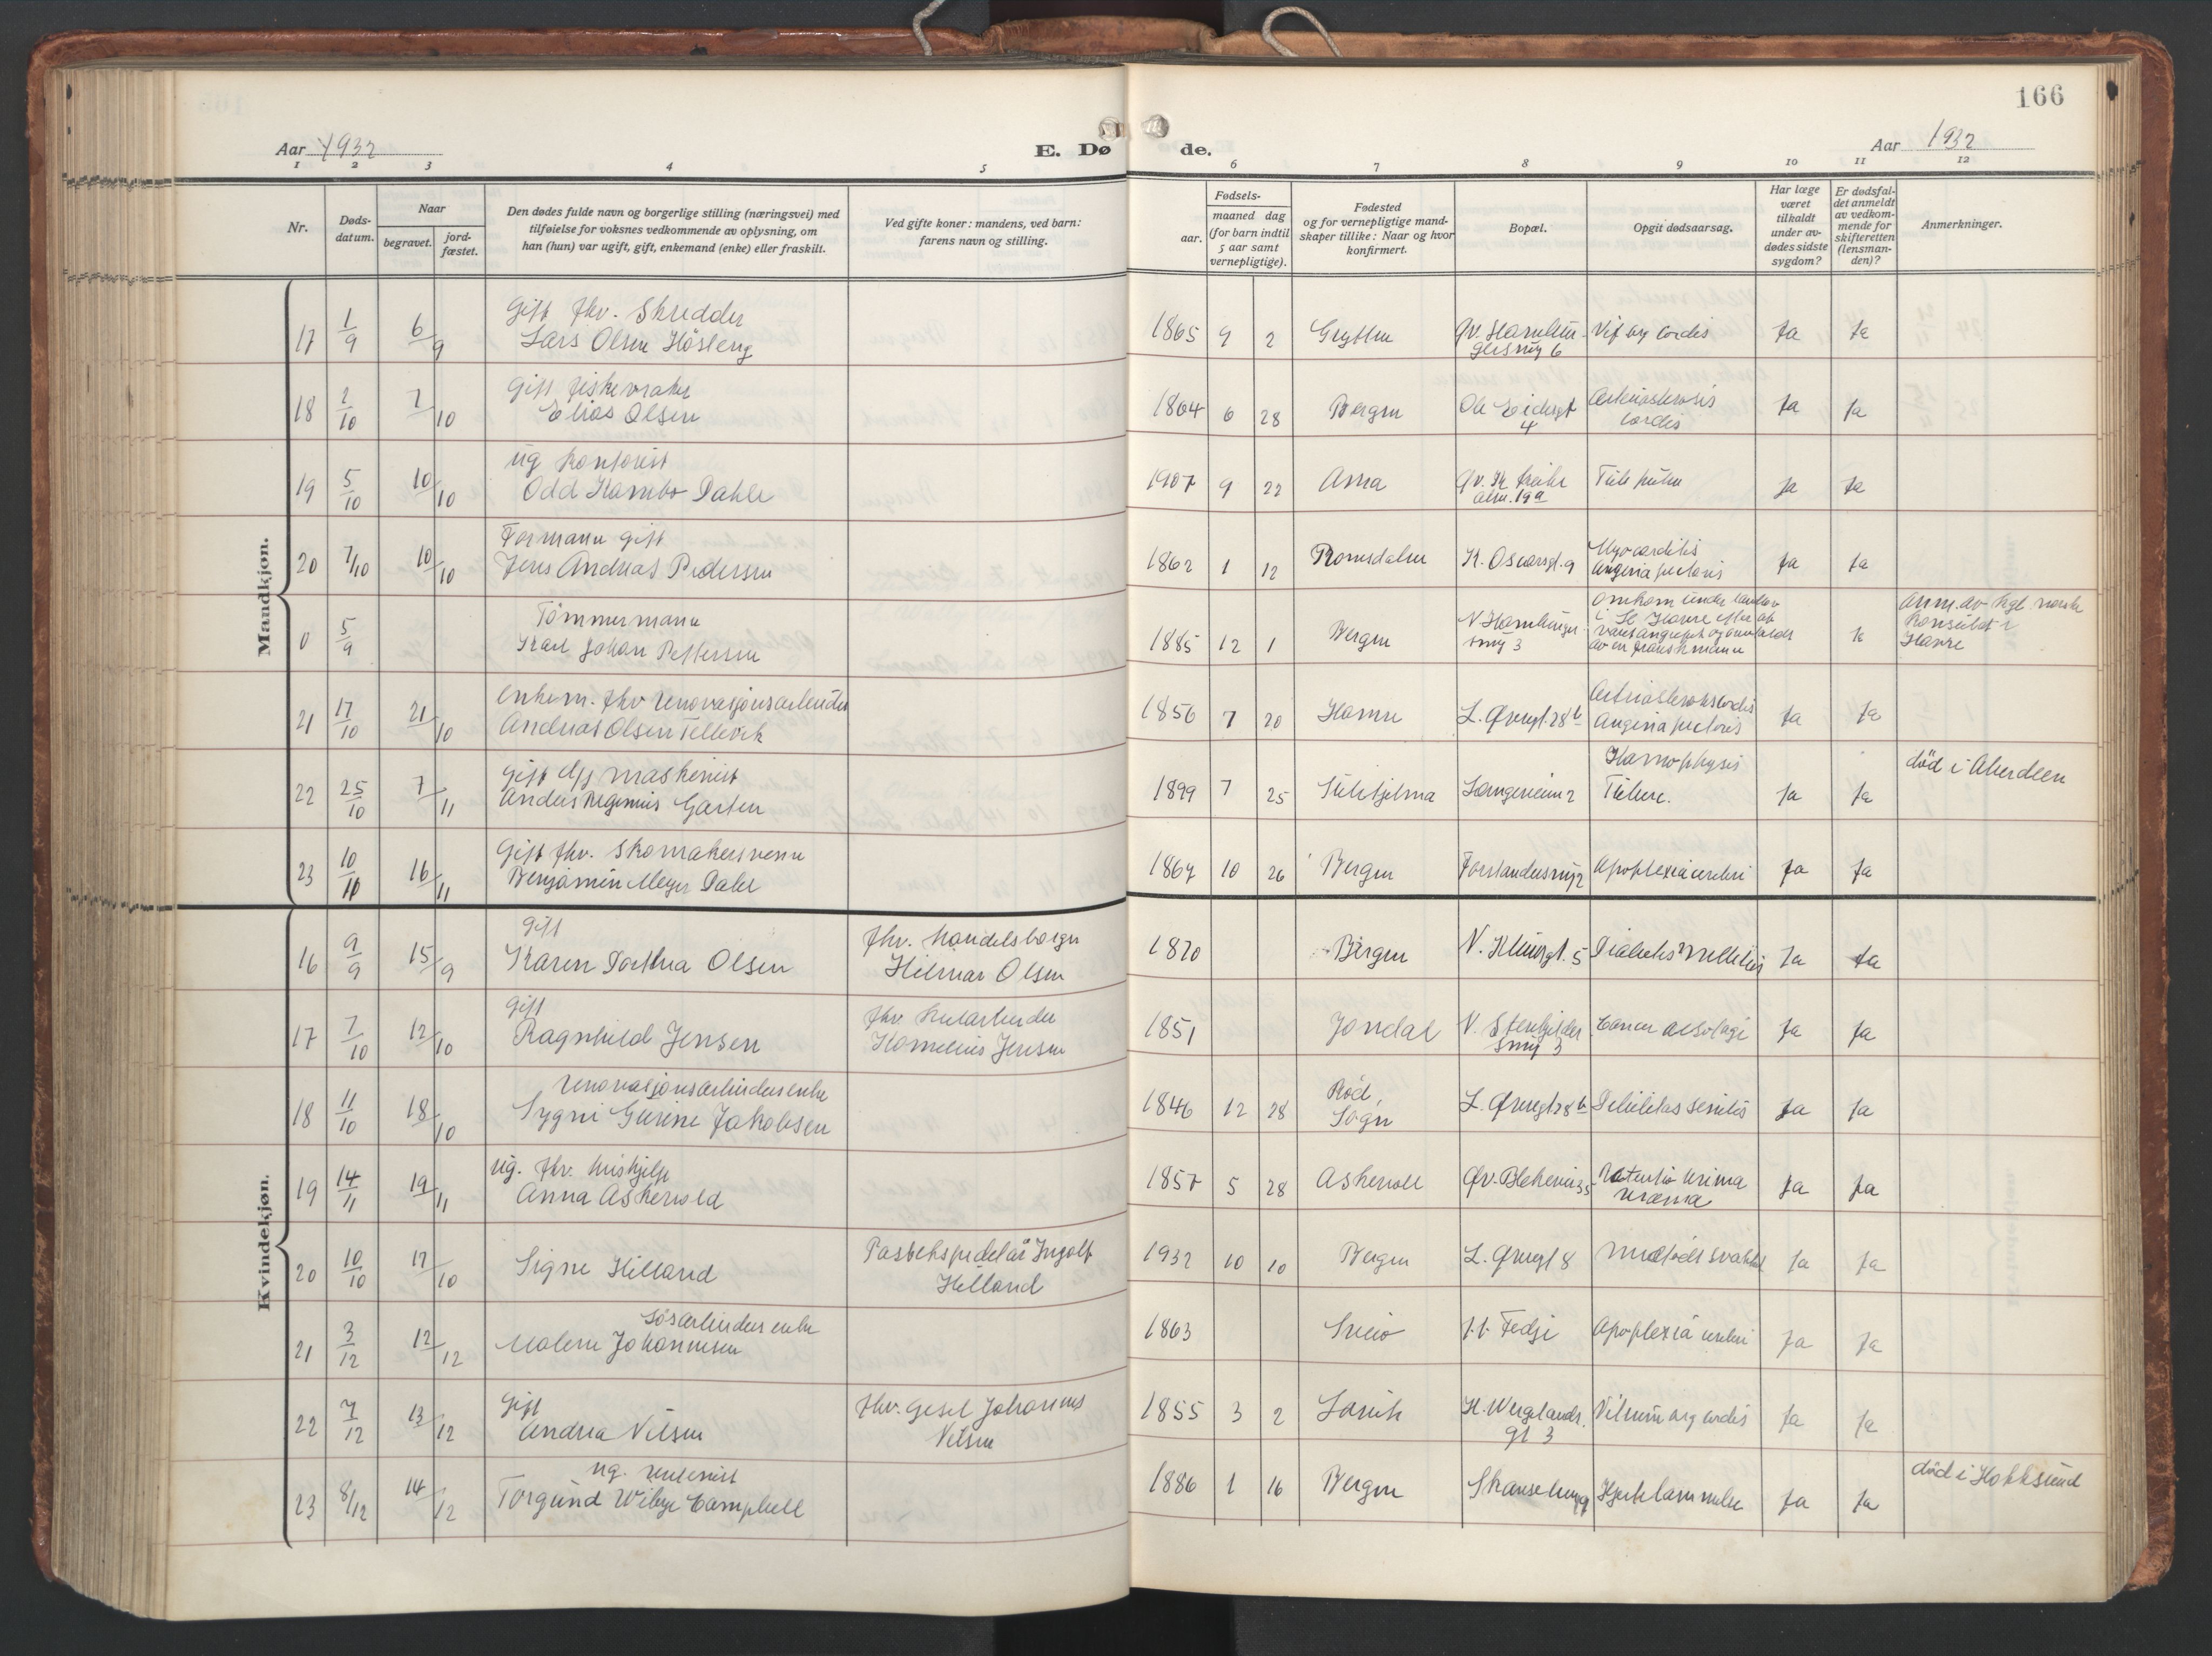 166
Aar 1932
E. Dø de.
Aar 1932
1 2 3 4 5 6 7 8 9 10 11 12
Nr.
Døds-
datum.
Naar
begravet.
jord-
fæstet.
Den dødes fulde navn og borgerlige stilling (næringsvei) med
tilføielse for voksnes vedkommende av oplysning, om
han (hun) var ugift, gift, enkemand (enke) eller fraskilt.
Ved gifte koner: mandens, ved barn:
farens navn og stilling.
Fødsels-
aar.
maaned dag
(for barn indtil
5 aar samt
vernepligtige).
Fødested
og for vernepligtige mand-
skaper tillike: Naar og hvor
konfirmert.
Bopæl.
Opgit dødsaarsag.
Har læge
været
tilkaldt
under av-
dødes sidste
sygdom?
Er dødsfal-
det anmeldt
av vedkom-
mende for
skifteretten
(lensman-
den)?
Anmerkninger.
Mandkjøn.
17 1/9 6/9 Gift fhv. Skredder
Lars Olsen Hösleng
1865 9 2 Grytten Ja Ja
18 2/10 7/10 Gift fiskevraker
Elias Olsen
1864 6 28 Bergen Ole Eidesgt
4 Arteriosclerosis
cordis Ja Ja
19 5/10 10/10 ug kontorist
Odd Dahle
1907 9 22 Asna alm. 19a Ja Ja
20 7/10 10/10 Formann gift
Jens Andreas Pedersen
1862 1 12 Romsdalen K. Oscarsgt. 9 Myocarditis
Angina pectoris Ja Ja
0 5/9 Tömmermann
Karl Johan Pettersen
1885 12 1 Bergen N. Hamburger
smug 3 Omkom under
i Le Havre efter at
være angrepet og
av en franskmann Ja Anm. av kgl. norske
Konsulat i
Havre
21 17/10 21/10 Enkem. fhv renovasjonsarbeider
Andreas Olsen Tellevik
1856 7 20 Hamre L. Øvregt. 28b Arteriosclerosis cordis
Angina pectoris Ja Ja
22 25/10 7/11 Gift maskinist
Anders Regenius Garten
1899 7 25 Langeveien 2 Hæmophysis
Tuberc. Ja Ja död i Aberdeen
23 10/11 16/11 Gift fhv. Skomakersvenn
Benjamin Meyer Dahl
1867 10 26 Bergen Forstandersmug 2 Apoplexia cerebri Ja Ja
Kvindekjøn.
16 9/9 15/9 Gift
Karen Dorthea Olsen
fhv. handelsborger
Hilmar Olsen
1870 Bergen N. Kleivgt. 5 Diabetes mellitus Ja Ja
17 7/10 12/10 Gift
Ragnhild Jensen
fhv
Kornelius Jensen
1851 Jondal V. Stenkjelder
smug 3 Cancer oesofagi Ja Ja
18 11/10 18/10 renovasjonsarbeidersenke
Sygni Gurine Jakobsen
1846 12 28 Sogn L. Øvregt 28b Debilitas senilis Ja Ja
19 14/11 19/11 ug. fhv. hushjelp
Anna Askevold
1857 5 28 Askevoll Øv. Blekevei 35 Retentio urina
uræmia Ja Ja
20 10/10 17/10 Signe Helland
Postekspeditör Ingolf
Helland
1932 10 10 Bergen L. Øvregt 8 Medfödt svakhet Ja Ja
21 3/12 12/12 Lösarbeiders enke
Malene Johannesen
1863 Sveio Fedje Apoplexia cerebri Ja Ja
22 7/12 13/12 Gift
Andrea Nilsen
fhv. Johannes
Nilsen
1855 3 2 Larvik H. Wergelands
gt 3 Vitium org cordis Ja Ja
23 8/12 14/12 ug. rentenist
Torgund Wiberg Campbell
1886 1 16 Bergen Hjertelammelse Ja Ja död i Hokksund